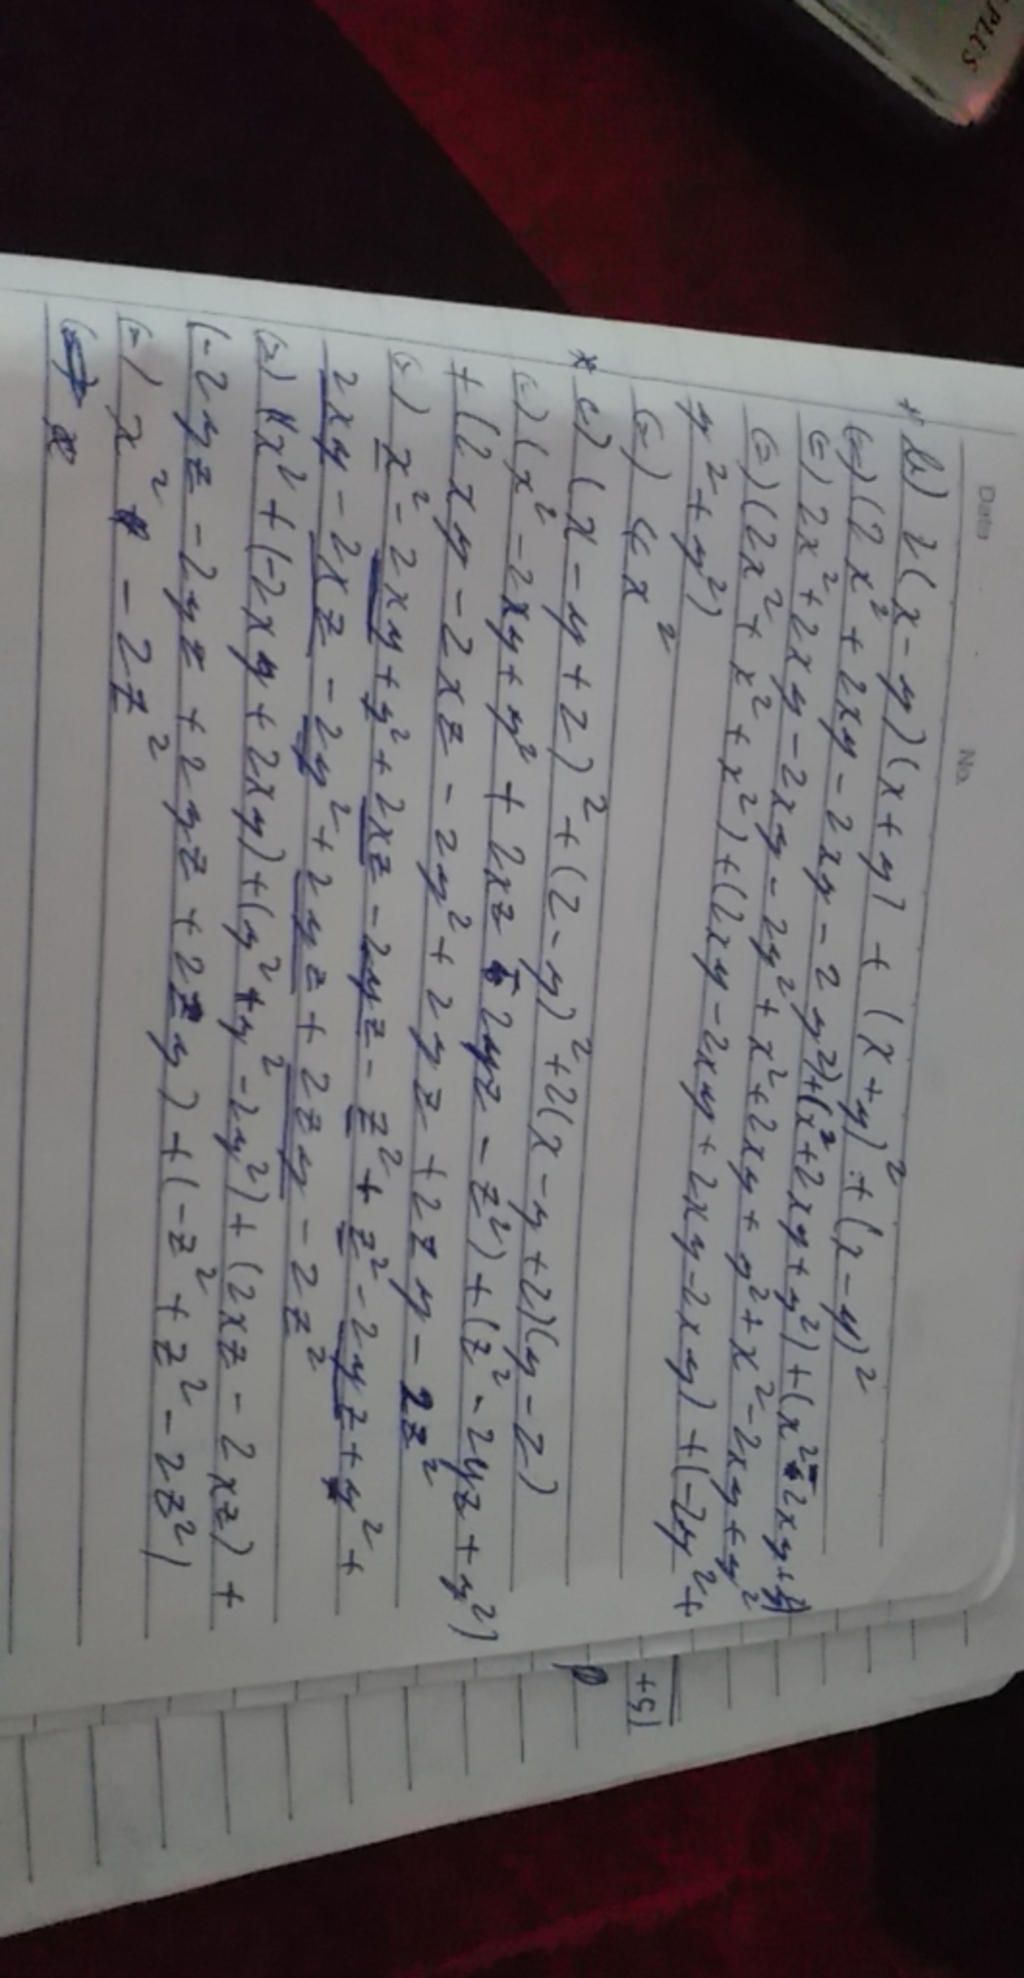 PLUS
Date
No.
* b) 2(x-y)(x+y) + (x+y)² + (x-y)²
(=) (2x²+2xy-2xy-2y²)+(x²+2xy+y²)+(x²-2xy+y²)
(=) 2x²+2xy-2xy-2y²+x²+2xy+y²+x²-2xy+y²
(=) (2x²+x²+x²)+(2xy-2xy+2xy-2xy)+(-2y²+
y²+y²)
(=) 4x²
* c) (x-y+z)²+(z-y)²+2(x-y+z)(y-z)
(=) (x²-2xy+y²+2xz-2yz-z²)+(z²-2yz+y²)
+(2xy-2xz-2y²+2yz+2zy-2z²
(=) x²-2xy+y²+2xz-2yz-z²+z²-2yz+y²+
2xy-2xz-2y²+2yz+2zy-2z²
(=) x²+(-2xy+2xy)+(y²+y²-2y²)+(2xz-2xz)+
(-2yz-2yz+2yz+2zy)+(-z²+z²-2z²)
(=) x² -2z²
+5)